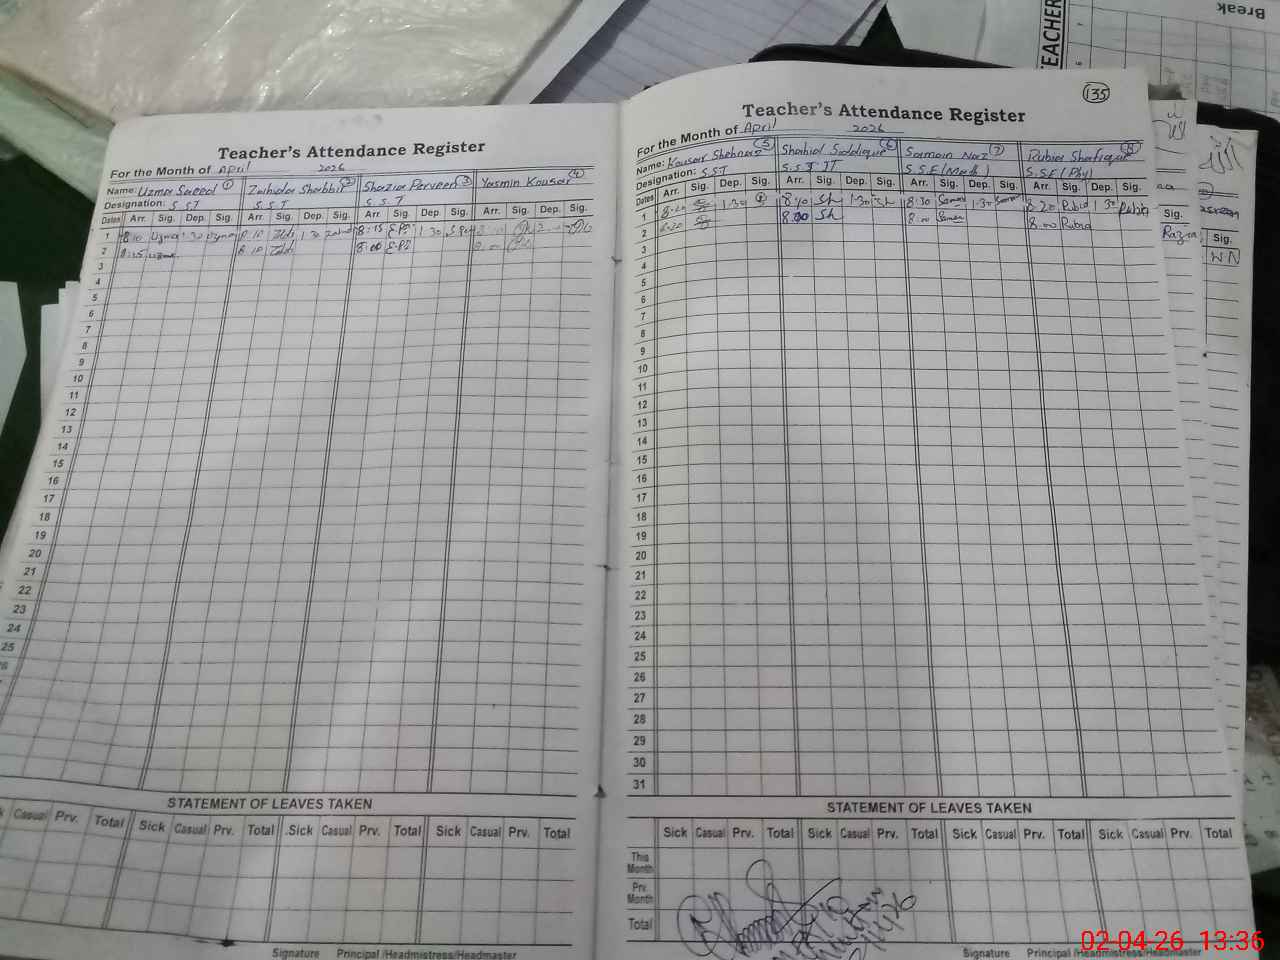 Break
TEACHER
135
Teacher's Attendance Register
For the Month of April 2026
Name: Uzma Saeed 1 Zubida Shabbir 2 Shazia Perveen 3 Yasmin Kousar 4
Designation: S.ST S.S.T S.S.T
Dates Arr. Sig. Dep. Sig. Arr. Sig. Dep. Sig. Arr. Sig. Dep. Sig. Arr. Sig. Dep. Sig.
1 8:10 Uzma 1:30 Uzma 8:10 1:30 8:15 1:30
2 8:15 8:10 8:00
3
4
5
6
7
8
9
10
11
12
13
14
15
16
17
18
19
20
21
22
23
24
25
26
STATEMENT OF LEAVES TAKEN
Casual Prv. Total Sick Casual Prv. Total Sick Casual Prv. Total Sick Casual Prv. Total
Signature Principal /Headmistress/Headmaster
Teacher's Attendance Register
For the Month of April 2026
Name: Kousar Shabnaz 5 Shahid Siddique 6 Samain Naz 7 Rubia Shafique 8
Designation: S.ST S.S.T IT S.S.E (Math) S.SE (Phy)
Dates Arr. Sig. Dep. Sig. Arr. Sig. Dep. Sig. Arr. Sig. Dep. Sig. Arr. Sig. Dep. Sig.
1 8:20 1:30 8:40 Sh 1:30 Sh 8:30 1:30 8:20 Rubia 1:30 Rubia
2 8:20 8:00 Sh 8:00 8:00 Rubia
3
4
5
6
7
8
9
10
11
12
13
14
15
16
17
18
19
20
21
22
23
24
25
26
27
28
29
30
31
STATEMENT OF LEAVES TAKEN
Sick Casual Prv. Total Sick Casual Prv. Total Sick Casual Prv. Total Sick Casual Prv. Total
This Month
Prv. Month
Total
Signature Principal /Headmistress/Headmaster
Sig.
Razia
Sig.
WN
02-04-26 13:36